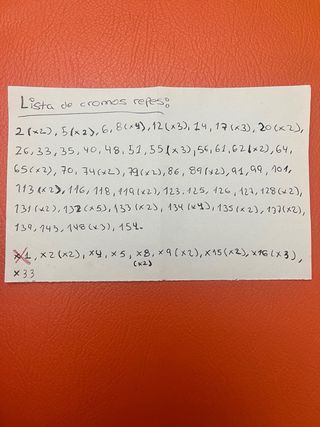 Lista de cromos repes:
2(x2), 5(x2), 6, 8(x4), 12(x3), 14, 17(x3), 20(x2),
26, 33, 35, 40, 48, 51, 55(x3), 56, 61, 62(x2), 64,
65(x2), 70, 74(x2), 79(x2), 86, 89(x2), 91, 99, 101,
113(x2), 116, 118, 119(x2), 123, 125, 126, 127, 128(x2),
131(x2), 132(x5), 133(x2), 134(x4), 135(x2), 137(x2),
139, 143, 148(x3), 154.
x1, x2(x2), x4, x5, x8, x9(x2), x15(x2), x16(x3),
(x2)
x33